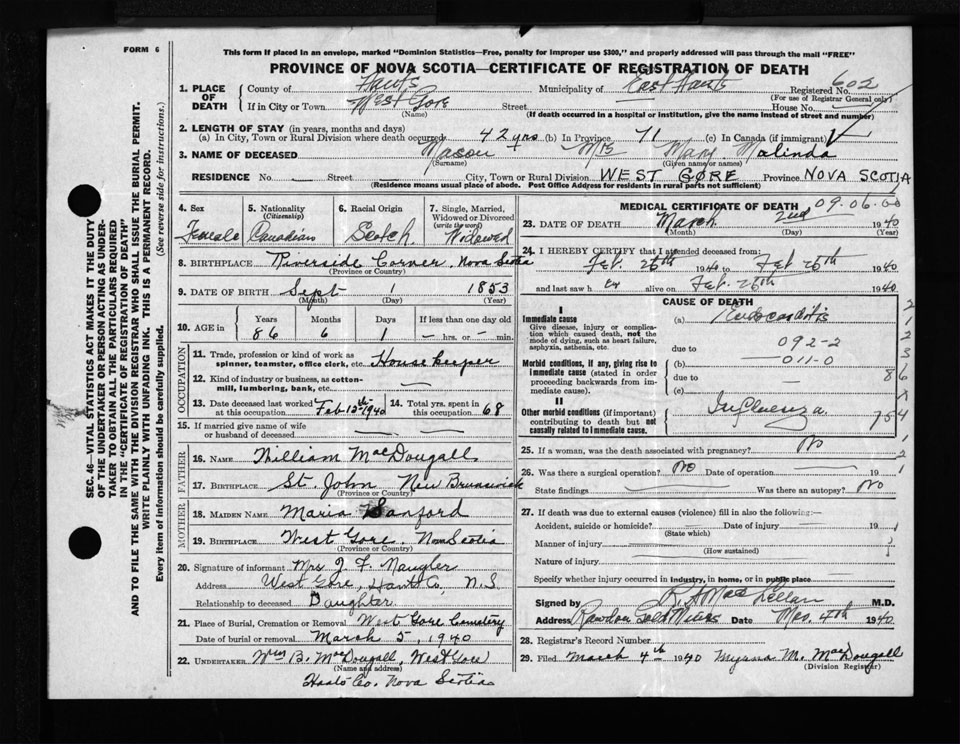 FORM 6
This form if placed in an envelope, marked "Dominion Statistics—Free, penalty for improper use $300," and properly addressed will pass through the mail "FREE"
PROVINCE OF NOVA SCOTIA—CERTIFICATE OF REGISTRATION OF DEATH
1. PLACE OF DEATH
County of Hants Municipality of East Hants Registered No. 602
(For use of Registrar General only)
If in City or Town West Gore Street House No.
(Name) (If death occurred in a hospital or institution, give the name instead of street and number)
2. LENGTH OF STAY (in years, months and days)
(a) In City, Town or Rural Division where death occurred 42 yrs (b) In Province 71 (c) In Canada (if immigrant)
3. NAME OF DECEASED Mason Mrs Mary Malinda
(Surname) (Given name or names)
RESIDENCE No. — Street — City, Town or Rural Division WEST GORE Province NOVA SCOTIA
(Residence means usual place of abode. Post Office Address for residents in rural parts not sufficient)
4. Sex Female
5. Nationality (Citizenship) Canadian
6. Racial Origin Scotch
7. Single, Married, Widowed or Divorced (write the word) Widowed
8. BIRTHPLACE Riverside Corner, Nova Scotia
(Province or Country)
9. DATE OF BIRTH Sept 1 1853
(Month) (Day) (Year)
10. AGE in Years 86 Months 6 Days 1 If less than one day old — hrs. or — min.
OCCUPATION
11. Trade, profession or kind of work as spinner, teamster, office clerk, etc. House keeper
12. Kind of industry or business, as cotton-mill, lumbering, bank, etc. —
13. Date deceased last worked at this occupation Feb 12th 1940
14. Total yrs. spent in this occupation 68
15. If married give name of wife or husband of deceased —
FATHER
16. NAME William MacDougall
17. BIRTHPLACE St. John New Brunswick
(Province or Country)
MOTHER
18. MAIDEN NAME Maria Sanford
19. BIRTHPLACE West Gore, Nova Scotia
(Province or Country)
20. Signature of informant Mrs J. F. Naugler
Address West Gore, Hants Co, N.S
Relationship to deceased Daughter
21. Place of Burial, Cremation or Removal West Gore Cemetery
Date of burial or removal March 5, 1940
22. UNDERTAKER Wm B. MacDougall, West Gore
(Name and address)
Hants Co. Nova Scotia
MEDICAL CERTIFICATE OF DEATH
23. DATE OF DEATH March 2nd 1940
(Month) (Day) (Year)
24. I HEREBY CERTIFY that I attended deceased from:
Feb. 26th 1940 to Feb 26th 1940
and last saw h er alive on Feb. 26th 1940
CAUSE OF DEATH
I
Immediate cause
Give disease, injury or complication which caused death, not the mode of dying, such as heart failure, asphyxia, asthenia, etc.
(a) Endocarditis
due to 092-2
Morbid conditions, if any, giving rise to immediate cause (stated in order proceeding backwards from immediate cause).
(b) 011-0
due to —
(c)
II
Other morbid conditions (if important) contributing to death but not causally related to immediate cause.
Influenza
25. If a woman, was the death associated with pregnancy? No
26. Was there a surgical operation? No Date of operation — 19
State findings Was there an autopsy? No
27. If death was due to external causes (violence) fill in also the following:—
Accident, suicide or homicide? Date of injury 19
(State which)
Manner of injury
(How sustained)
Nature of injury
Specify whether injury occurred in industry, in home, or in public place
Signed by R. A MacLellan M.D.
Address Rawdon Gold Mines Date Mar. 4th 1940
28. Registrar's Record Number
29. Filed March 4th 1940 Myrna M. MacDougall
(Division Registrar)
SEC. 46—VITAL STATISTICS ACT MAKES IT THE DUTY OF THE UNDERTAKER OR PERSON ACTING AS UNDERTAKER TO OBTAIN ALL THE PARTICULARS REQUIRED IN THE "CERTIFICATE OF REGISTRATION OF DEATH"
AND TO FILE THE SAME WITH THE DIVISION REGISTRAR WHO SHALL ISSUE THE BURIAL PERMIT.
WRITE PLAINLY WITH UNFADING INK. THIS IS A PERMANENT RECORD.
Every item of information should be carefully supplied. (See reverse side for instructions.)